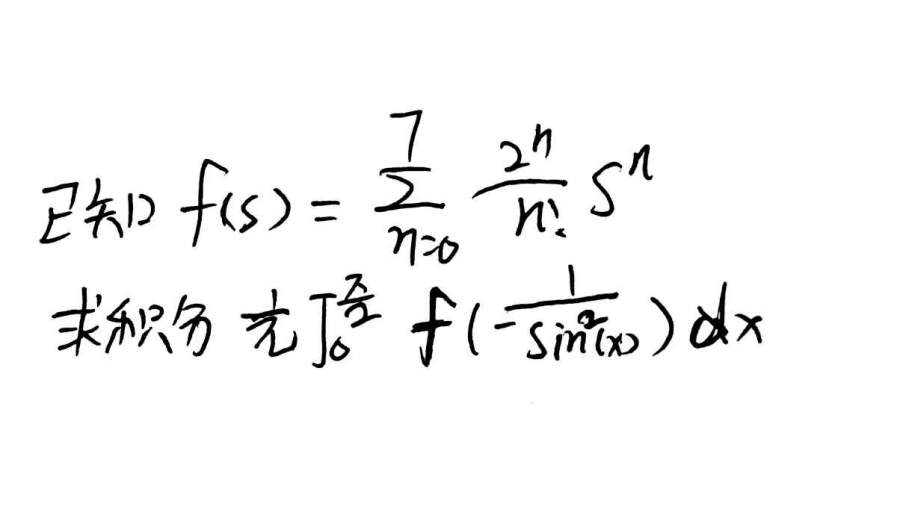 已知 f(s) = \sum_{n=0}^{7} \frac{2^n}{n!} s^n
求积分 \frac{1}{π} \int_0^{\frac{π}{2}} f(-\frac{1}{sin^2(x)}) dx